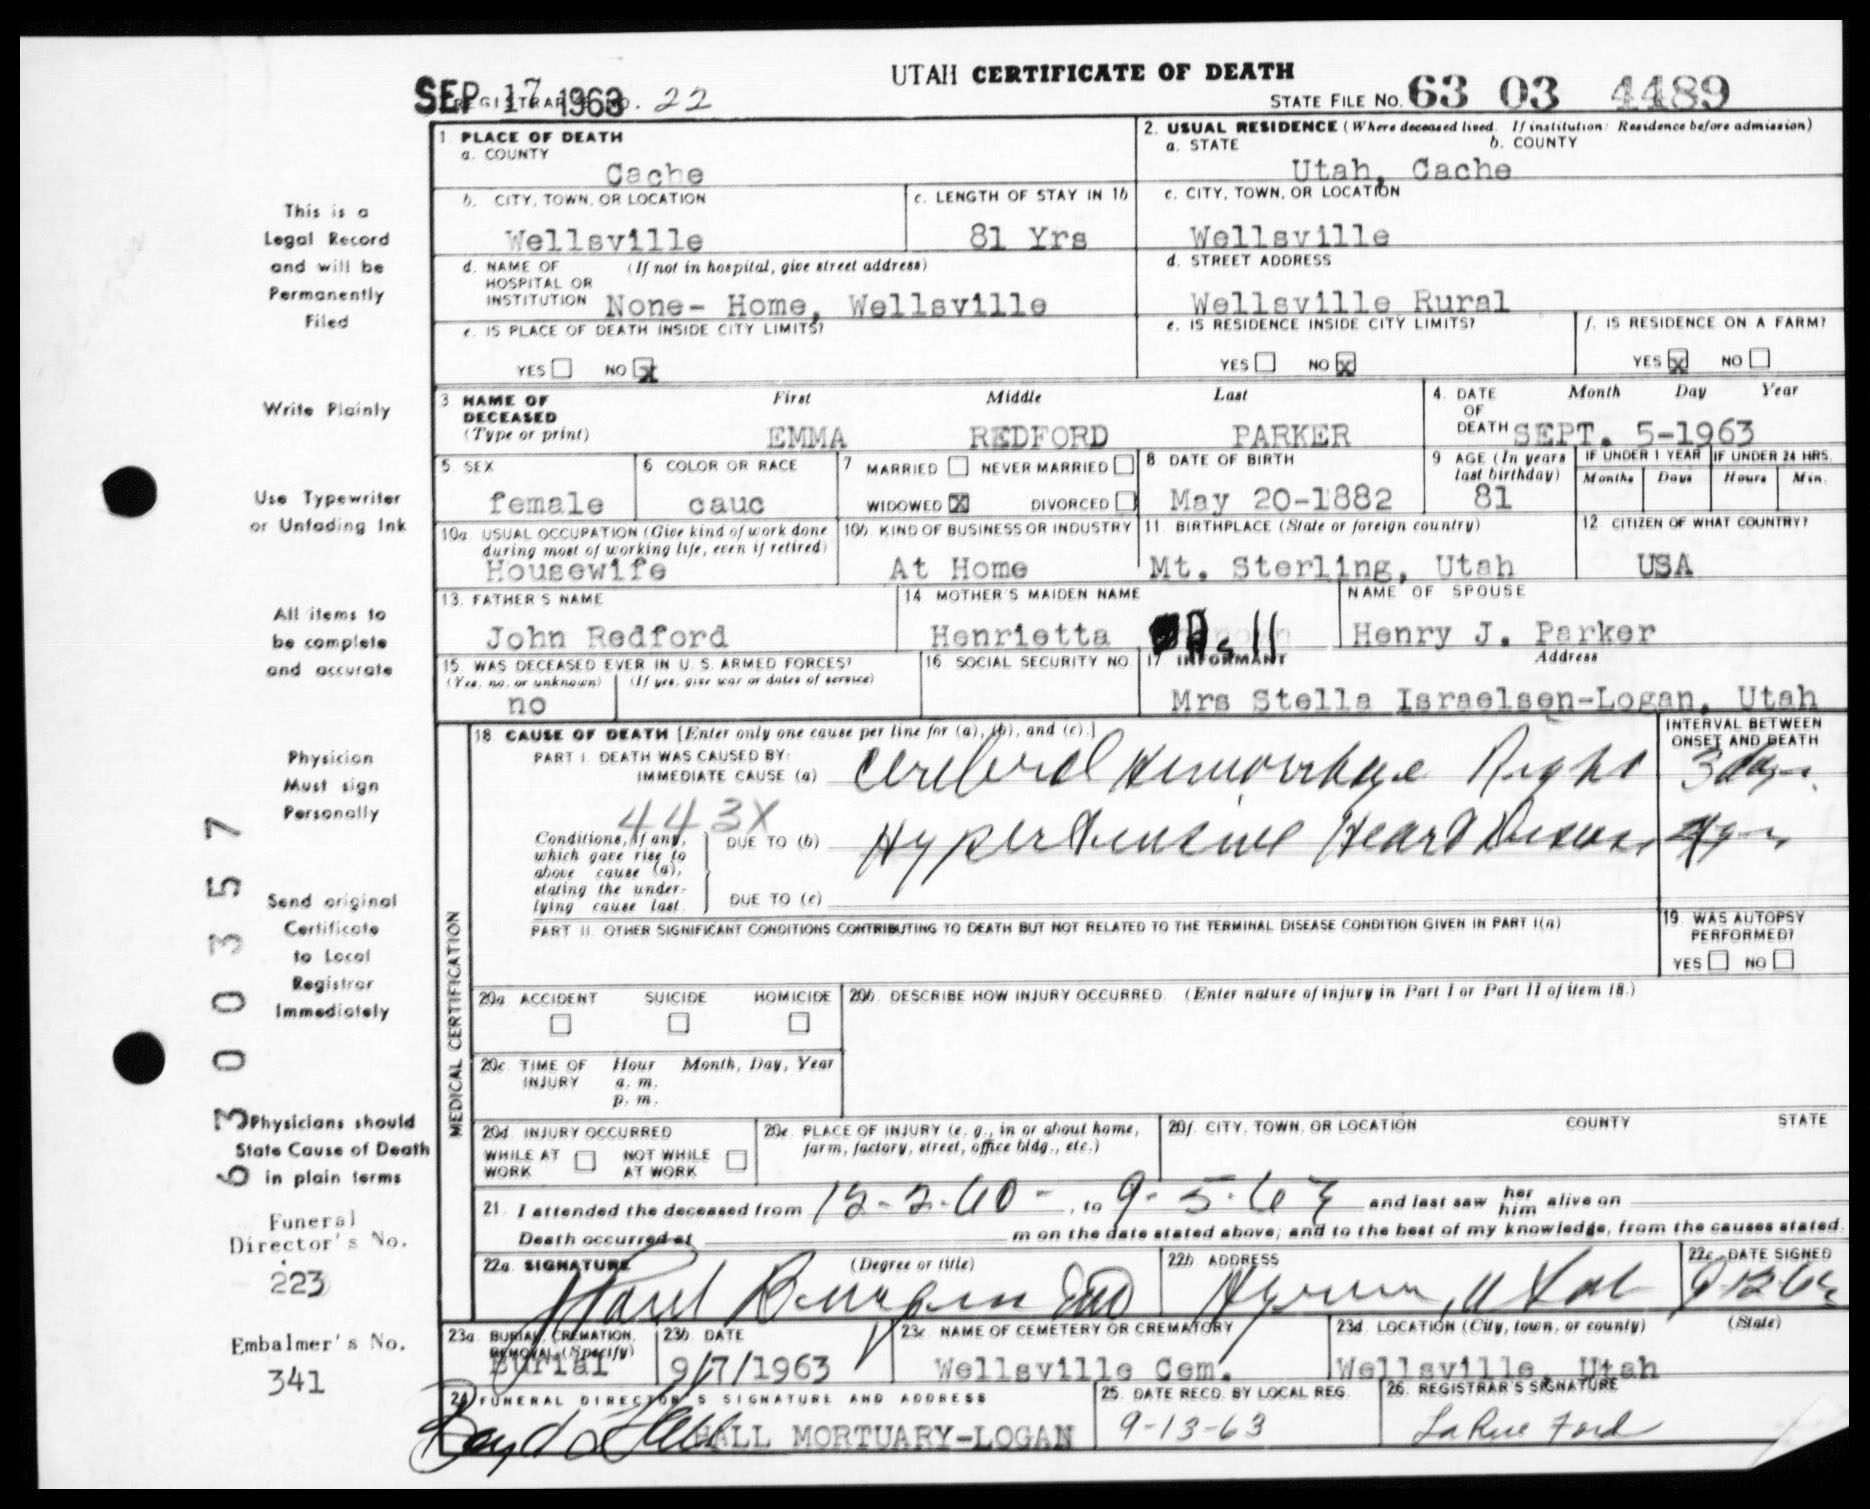 UTAH CERTIFICATE OF DEATH
SEP 17 1963
REGISTRAR'S NO. 22
STATE FILE NO. 63 03 4489
1. PLACE OF DEATH
a. COUNTY
Cache
2. USUAL RESIDENCE (Where deceased lived. If institution: Residence before admission)
a. STATE b. COUNTY
Utah, Cache
b. CITY, TOWN, OR LOCATION
Wellsville
c. LENGTH OF STAY IN 1b
81 Yrs
c. CITY, TOWN, OR LOCATION
Wellsville
d. NAME OF HOSPITAL OR INSTITUTION (If not in hospital, give street address)
None- Home, Wellsville
d. STREET ADDRESS
Wellsville Rural
e. IS PLACE OF DEATH INSIDE CITY LIMITS?
YES NO X
e. IS RESIDENCE INSIDE CITY LIMITS?
YES NO X
f. IS RESIDENCE ON A FARM?
YES X NO
3 NAME OF DECEASED (Type or print)
First Middle Last
EMMA REDFORD PARKER
4. DATE OF DEATH Month Day Year
SEPT. 5-1963
5 SEX
female
6 COLOR OR RACE
cauc
7 MARRIED NEVER MARRIED
WIDOWED X DIVORCED
8. DATE OF BIRTH
May 20-1882
9 AGE (In years last birthday)
81
IF UNDER 1 YEAR
Months Days
IF UNDER 24 HRS.
Hours Min.
10a. USUAL OCCUPATION (Give kind of work done during most of working life, even if retired)
Housewife
10b. KIND OF BUSINESS OR INDUSTRY
At Home
11. BIRTHPLACE (State or foreign country)
Mt. Sterling, Utah
12. CITIZEN OF WHAT COUNTRY?
USA
13. FATHER'S NAME
John Redford
14 MOTHER'S MAIDEN NAME
Henrietta
NAME OF SPOUSE
Henry J. Parker
15. WAS DECEASED EVER IN U. S. ARMED FORCES?
(Yes, no, or unknown) (If yes, give war or dates of service)
no
16 SOCIAL SECURITY NO.
17 INFORMANT Address
Mrs Stella Israelsen-Logan, Utah
MEDICAL CERTIFICATION
18 CAUSE OF DEATH [Enter only one cause per line for (a), (b), and (c).]
INTERVAL BETWEEN ONSET AND DEATH
PART I. DEATH WAS CAUSED BY:
IMMEDIATE CAUSE (a) Cerebral Hemorrhage Right 3 days
443X
Conditions, if any, which gave rise to above cause (a), stating the underlying cause last.
DUE TO (b) Hypertensive Heart Disease
DUE TO (c)
PART II. OTHER SIGNIFICANT CONDITIONS CONTRIBUTING TO DEATH BUT NOT RELATED TO THE TERMINAL DISEASE CONDITION GIVEN IN PART I(a)
19. WAS AUTOPSY PERFORMED?
YES NO
20a ACCIDENT SUICIDE HOMICIDE
20b. DESCRIBE HOW INJURY OCCURRED. (Enter nature of injury in Part I or Part II of item 18.)
20c TIME OF INJURY Hour Month, Day, Year
a. m.
p. m.
20d INJURY OCCURRED
WHILE AT WORK NOT WHILE AT WORK
20e. PLACE OF INJURY (e. g., in or about home, farm, factory, street, office bldg., etc.)
20f. CITY, TOWN, OR LOCATION COUNTY STATE
21. I attended the deceased from 12-2-60 -, to 9-5-63 and last saw her him alive on
Death occurred at m on the date stated above; and to the best of my knowledge, from the causes stated.
22a. SIGNATURE (Degree or title)
22b ADDRESS
Hyrum, Utah
22c. DATE SIGNED
23a. BURIAL, CREMATION, REMOVAL (Specify)
Burial
23b DATE
9/7/1963
23c. NAME OF CEMETERY OR CREMATORY
Wellsville Cem.
23d. LOCATION (City, town, or county) (State)
Wellsville, Utah
24 FUNERAL DIRECTOR'S SIGNATURE AND ADDRESS
HALL MORTUARY-LOGAN
25. DATE RECD. BY LOCAL REG.
9-13-63
26. REGISTRAR'S SIGNATURE
LaRue Ford
This is a
Legal Record
and will be
Permanently
Filed
Write Plainly
Use Typewriter
or Unfading Ink
All items to
be complete
and accurate
Physician
Must sign
Personally
Send original
Certificate
to Local
Registrar
Immediately
Physicians should
State Cause of Death
in plain terms
Funeral
Director's No.
223
Embalmer's No.
341
6300357